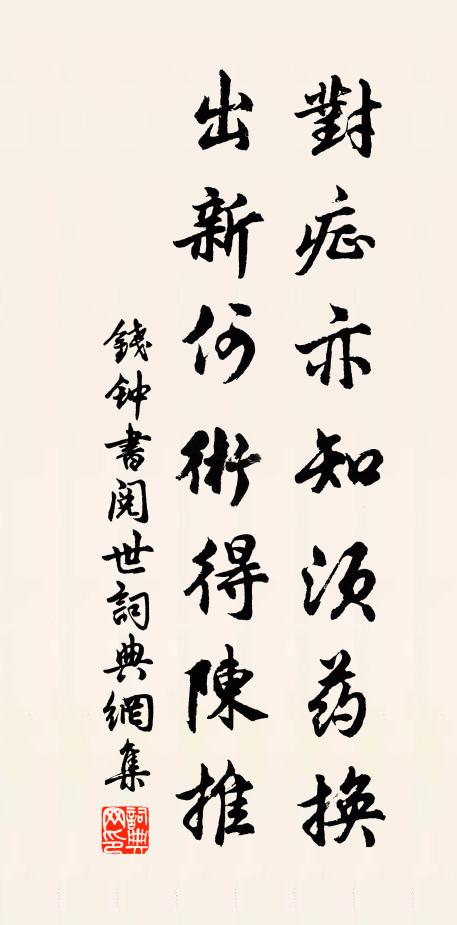 對症亦知须药换
出新何術得陳推
錢钟書閱世詞典網集
詞典網印